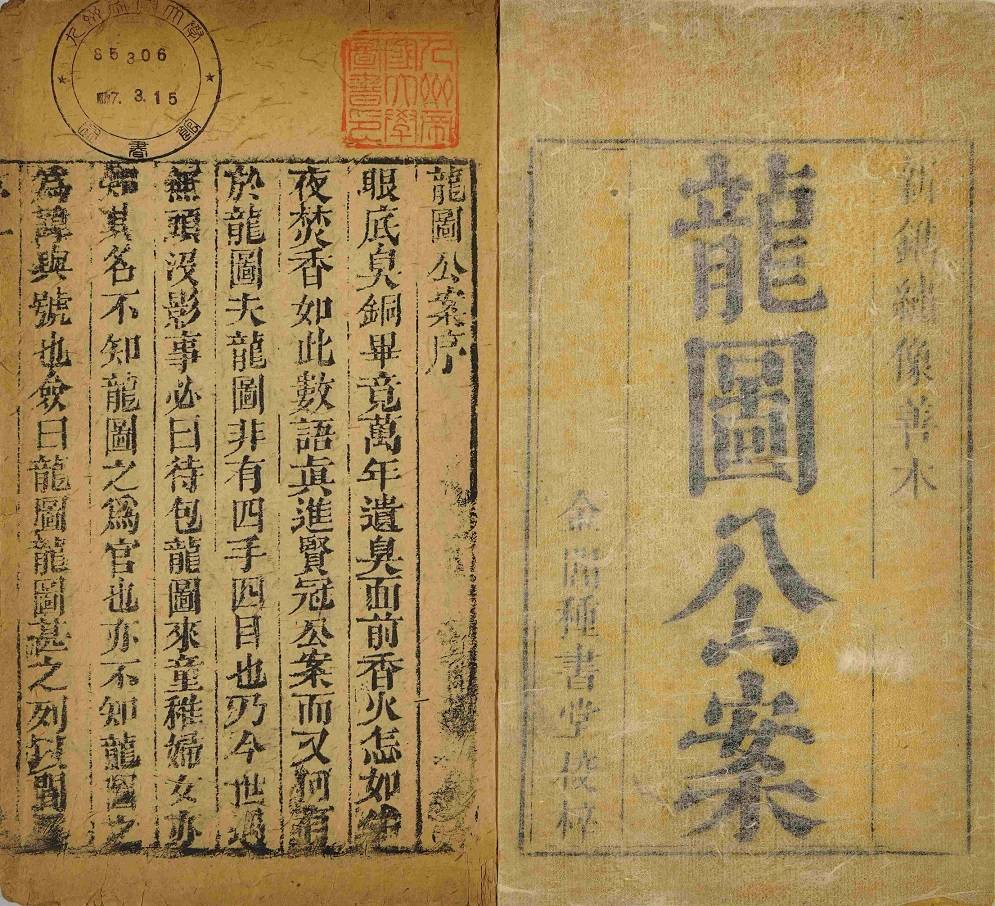 新鐫繡像善本
龍圖公案
金閶種書堂校梓
九州帝
國大學
圖書印
九州帝國大學
85306
7.3.15
圖書館
龍圖公案序
眼底臭銅畢竟萬年遺臭面前香火怎如
夜焚香如此數語眞進賢冠公案而又何有
於龍圖夫龍圖非有四手四目也乃今世遇
無頭沒影事必曰待包龍圖來童稚婦女亦
知其名不知龍圖之爲官也亦不知龍圖之
爲諱與號也僉曰龍圖龍圖甚之列